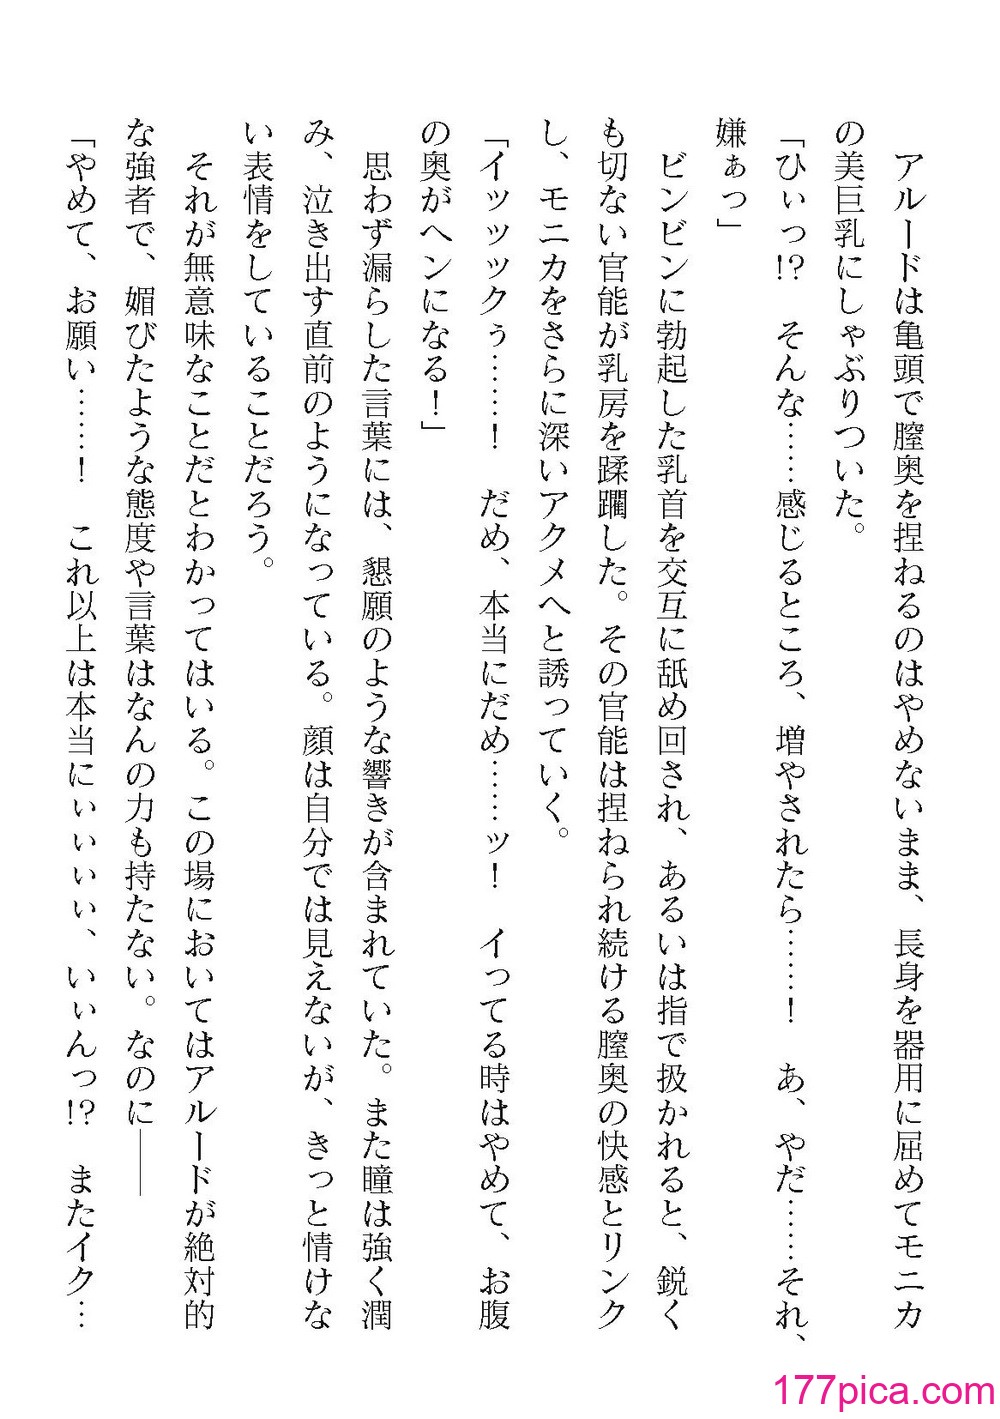 アルードは亀頭で膣奥を捏ねるのはやめないまま、長身を器用に屈めてモニカ
の美巨乳にしゃぶりついた。
「ひぃっ!?　そんな……感じるところ、増やされたら……！　あ、やだ……それ、
嫌ぁっ」
ビンビンに勃起した乳首を交互に舐め回され、あるいは指で扱かれると、鋭く
も切ない官能が乳房を蹂躙した。その官能は捏ねられ続ける膣奥の快感とリンク
し、モニカをさらに深いアクメへと誘っていく。
「イッッックぅ……！　だめ、本当にだめ……ッ！　イってる時はやめて、お腹
の奥がヘンになる！」
思わず漏らした言葉には、懇願のような響きが含まれていた。また瞳は強く潤
み、泣き出す直前のようになっている。顔は自分では見えないが、きっと情けな
い表情をしていることだろう。
それが無意味なことだとわかってはいる。この場においてはアルードが絶対的
な強者で、媚びたような態度や言葉はなんの力も持たない。なのに――
「やめて、お願い……！　これ以上は本当にぃぃぃぃ、いぃんっ!?　またイク…
177pica.com